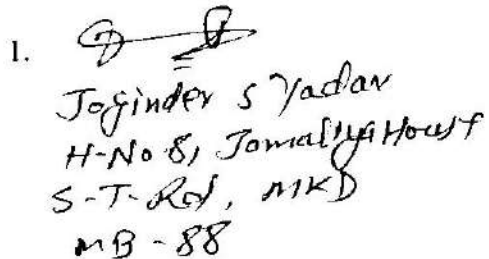 1.
Joginder S Yadav
H-No 8, House
S-T-Rd, MKD
MB-88